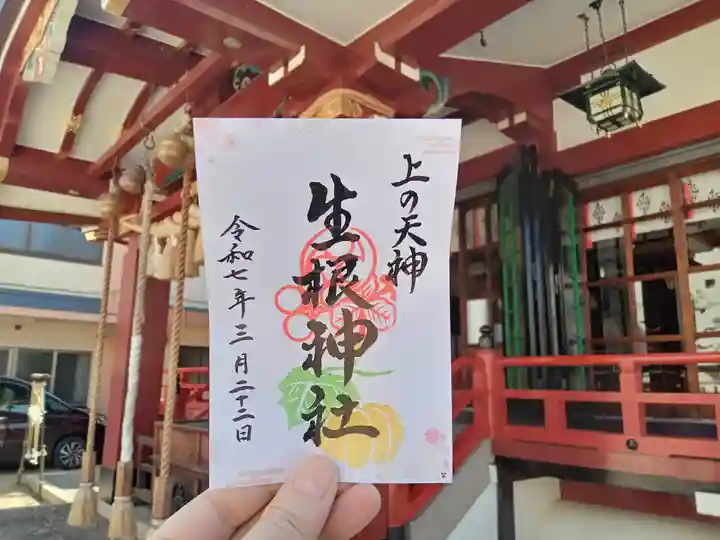 上の天神
生根神社
令和七年三月二十二日